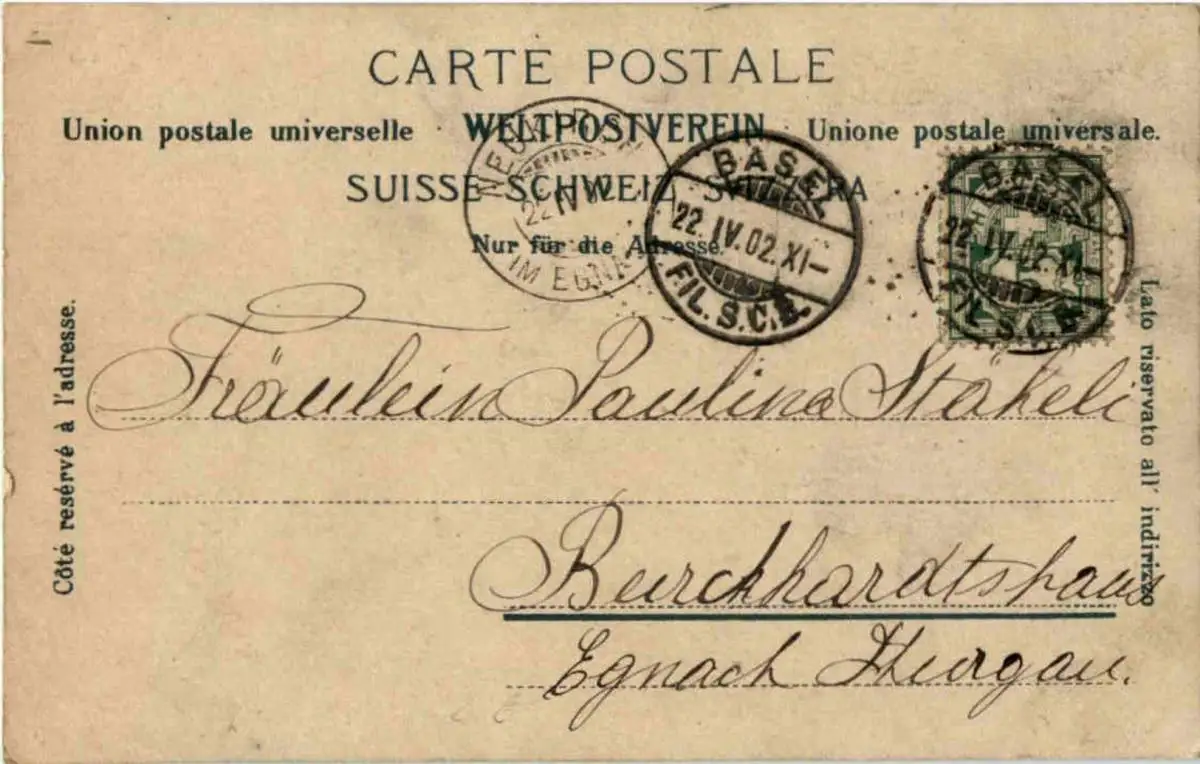 CARTE POSTALE
Union postale universelle WELTPOSTVEREIN Unione postale universale.
SUISSE SCHWEIZ SVIZZERA
Nur für die Adresse.
NEUKIRCH
22 IV 02
IM EGNACH
BASEL
22. IV. 02. XI–
FIL. S.C.B.
BASEL
22. IV. 02. XI
FIL. S.C.B.
Côté resérvé à l'adresse.
Lato riservato all' indirizzo
Fräulein Paulina Stäheli
Burckhardtshaus
Egnach Thurgau.